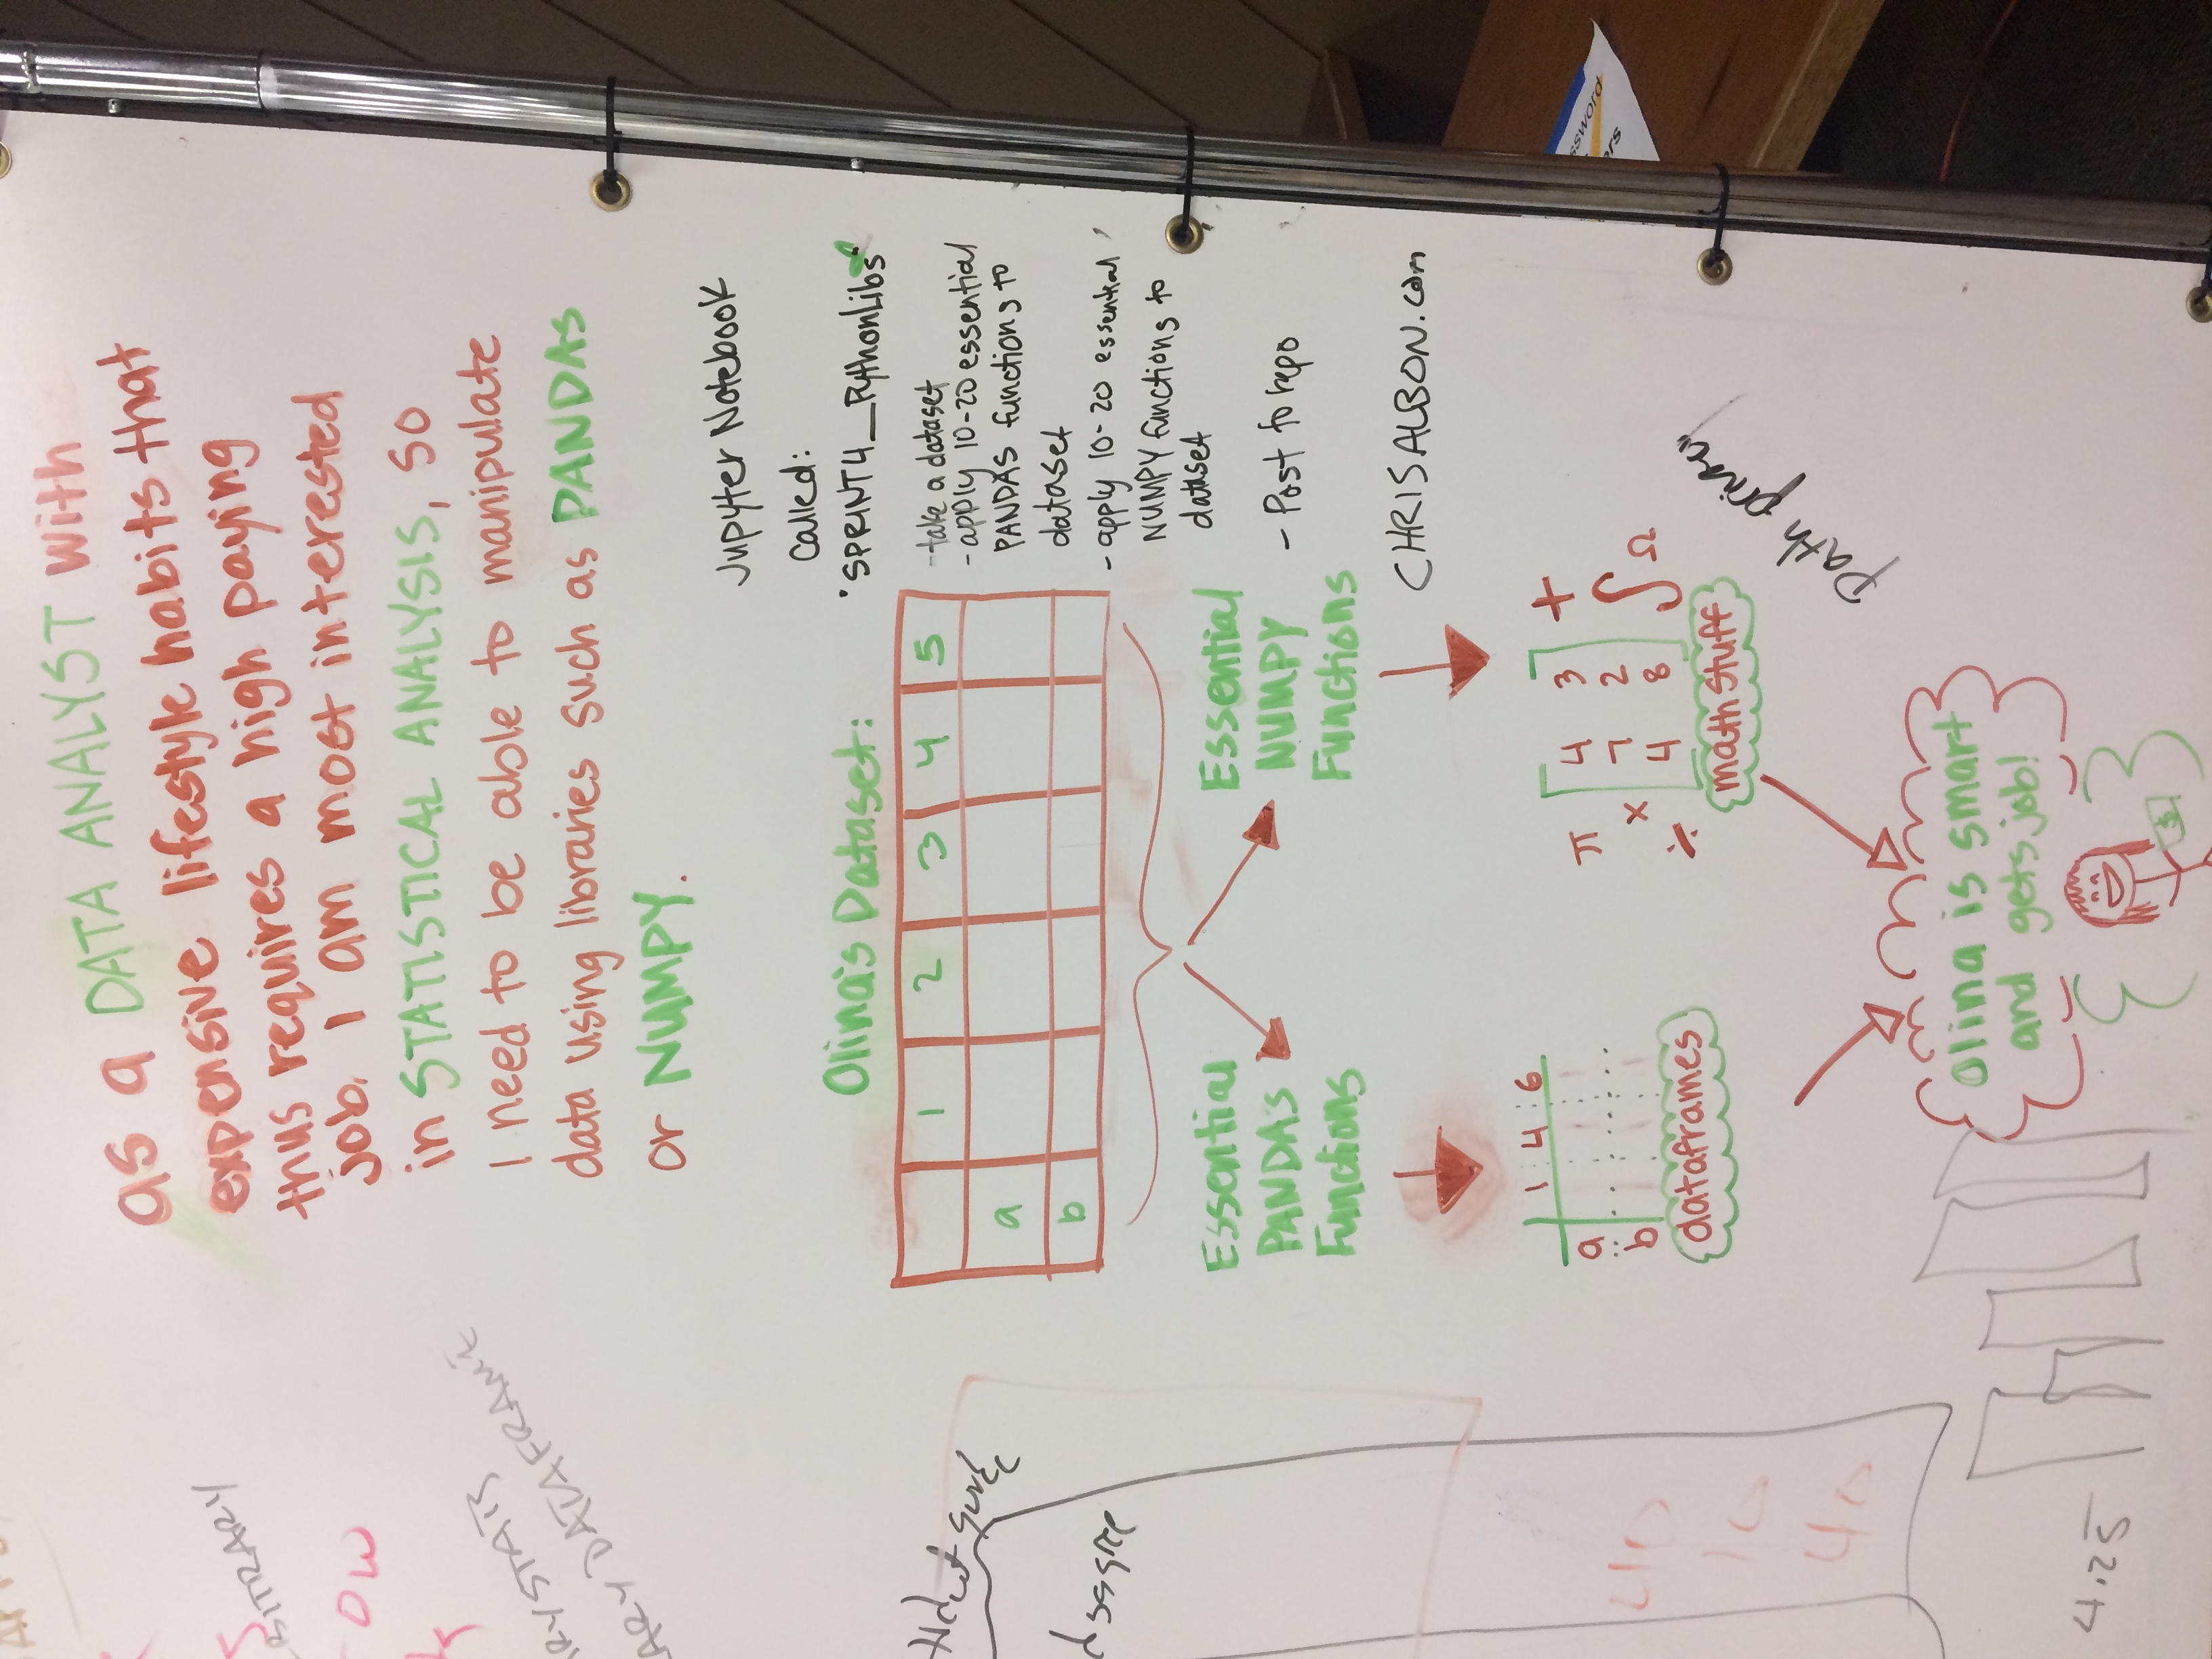 as a DATA ANALYST with
expensive lifestyle habits that
thus requires a high paying
job. I am most interested
in STATISTICAL ANALYSIS, so
I need to be able to manipulate
data using libraries such as PANDAS
or NUMPY.
Jupyter Notebook
called:
"SPRINT4_PythonLibs"
-take a dataset
-apply 10-20 essential
PANDAS functions to
dataset
-apply 10-20 essential
NUMPY functions to
dataset
- Post to repo
CHRISALBON.com
Olina's Dataset:
1 2 3 4 5
a
b
Essential
PANDAS
Functions
Essential
NUMPY
Functions
1 4 6
a
b
dataframes
π 4 3 +
× 7 2 ∫ Ω
÷ 4 8
math stuff
Path
Olina is smart
and gets job!
$
BITRARY
OW
RYSTATS
ARY DATAFRAME
40
10
40
4.25
ssword
ers